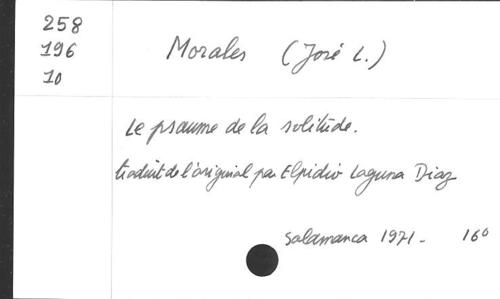 258
196
10
Morales (José L.)
Le psaume de la solitude.
traduit de l'original par Elpidio Laguna Diaz
Salamanca 1971 - 16°